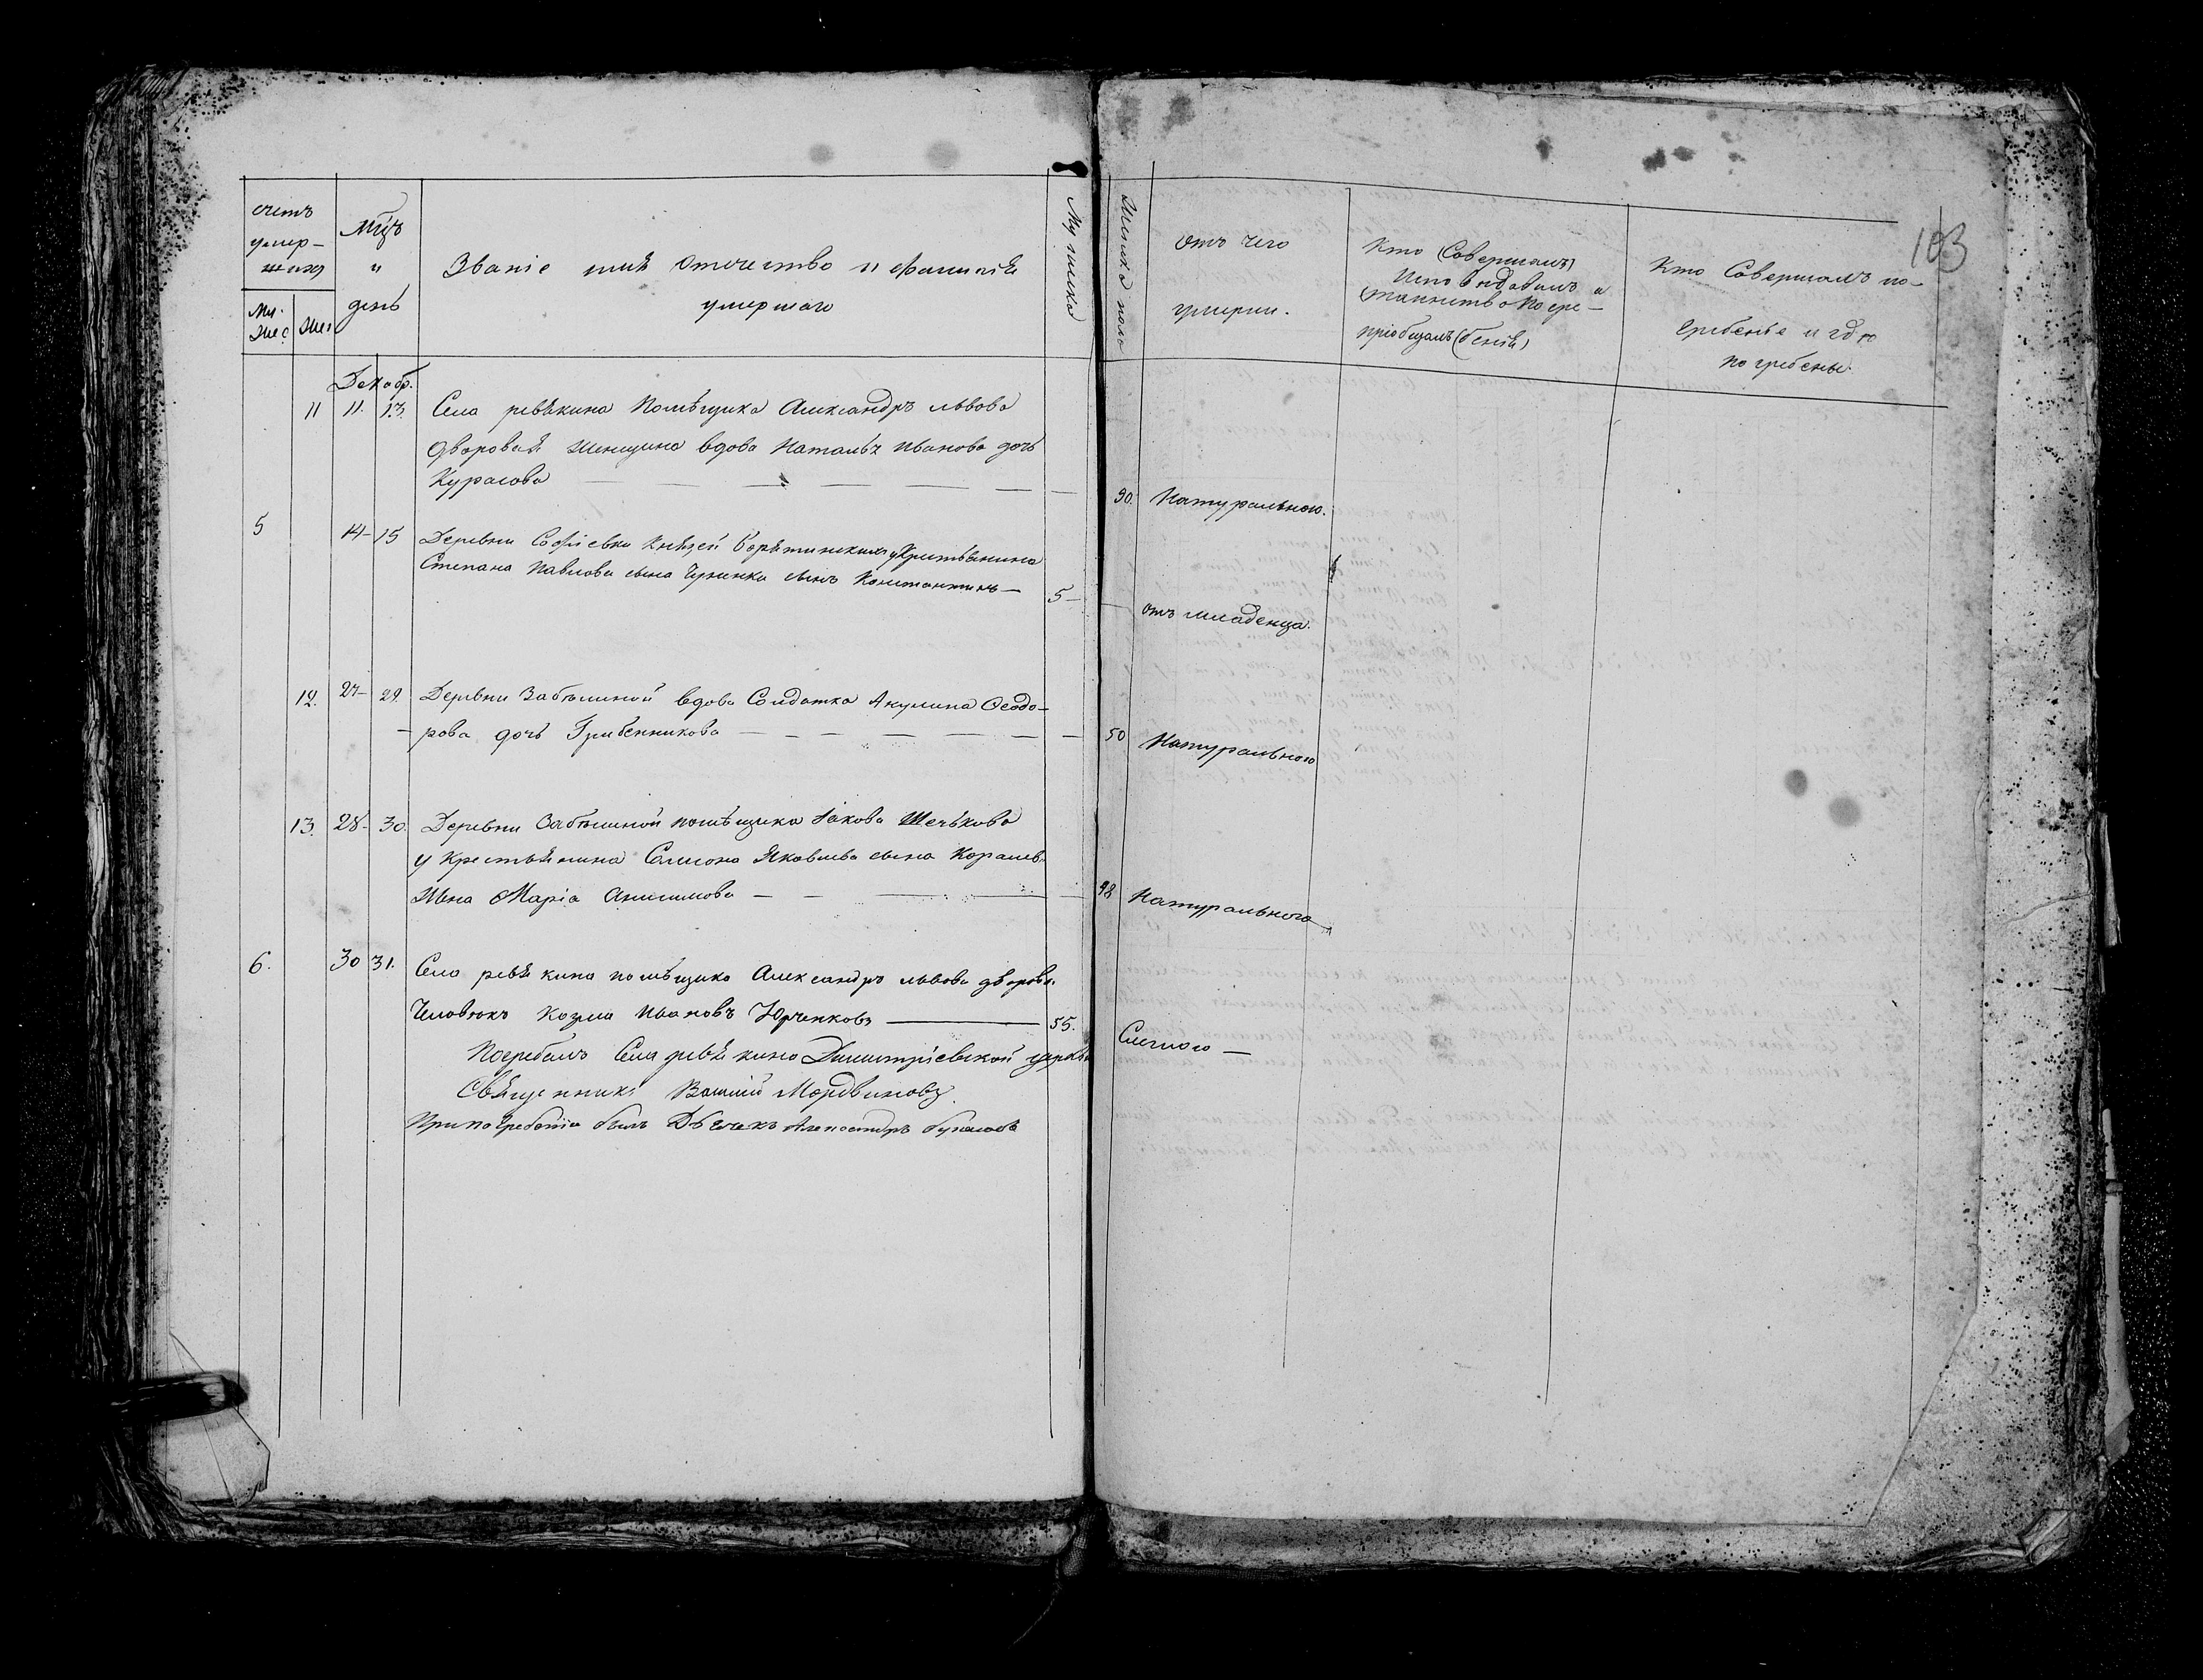 счетъ
умер-
шихъ
Му.
Жес.
Же:
мцъ
и
день
Званіе имя отчество и фамилія
умершаго
Мужеска
Женска полъ
отъ чего
умерли.
Кто (Совершалъ)
Исповедавалъ и
(таинство погре-
пріобщалъ (бенія)
Кто Совершалъ по-
гребенье и где
погребены.
103
Декабр.
11 11. 13. Села ревякина Помѣщика Александръ львова
дворовая женщина вдова Наталья Иванова дочь
Курасова 90. Натуральною.
5 14-15 Деревни Софіевки Князей Борятинскихъ у Крестьянина
Степана Павлова сына сынъ Константинъ 5
отъ младенца.
12. 27- 29. Деревни Забелиной вдова Солдатка Акулина Ѳеодо-
рова дочь Гребенникова 50 Натурального
13. 28- 30. Деревни Забелиной помѣщика Іакова Шечькова
у крестьянина Самсона Яковлева сына Королев.
Жена Марія Анисимова 98 Натурального
6. 30 31. Села ревякина помѣщика Александръ львова дворовы
Человѣкъ Козма Ивановъ Юрченковъ 55.
Погребалъ Села ревякина Димитріевской церкви
Священникъ Василій Мордвиновъ.
При погребеніи былъ Дьячекъ Александръ